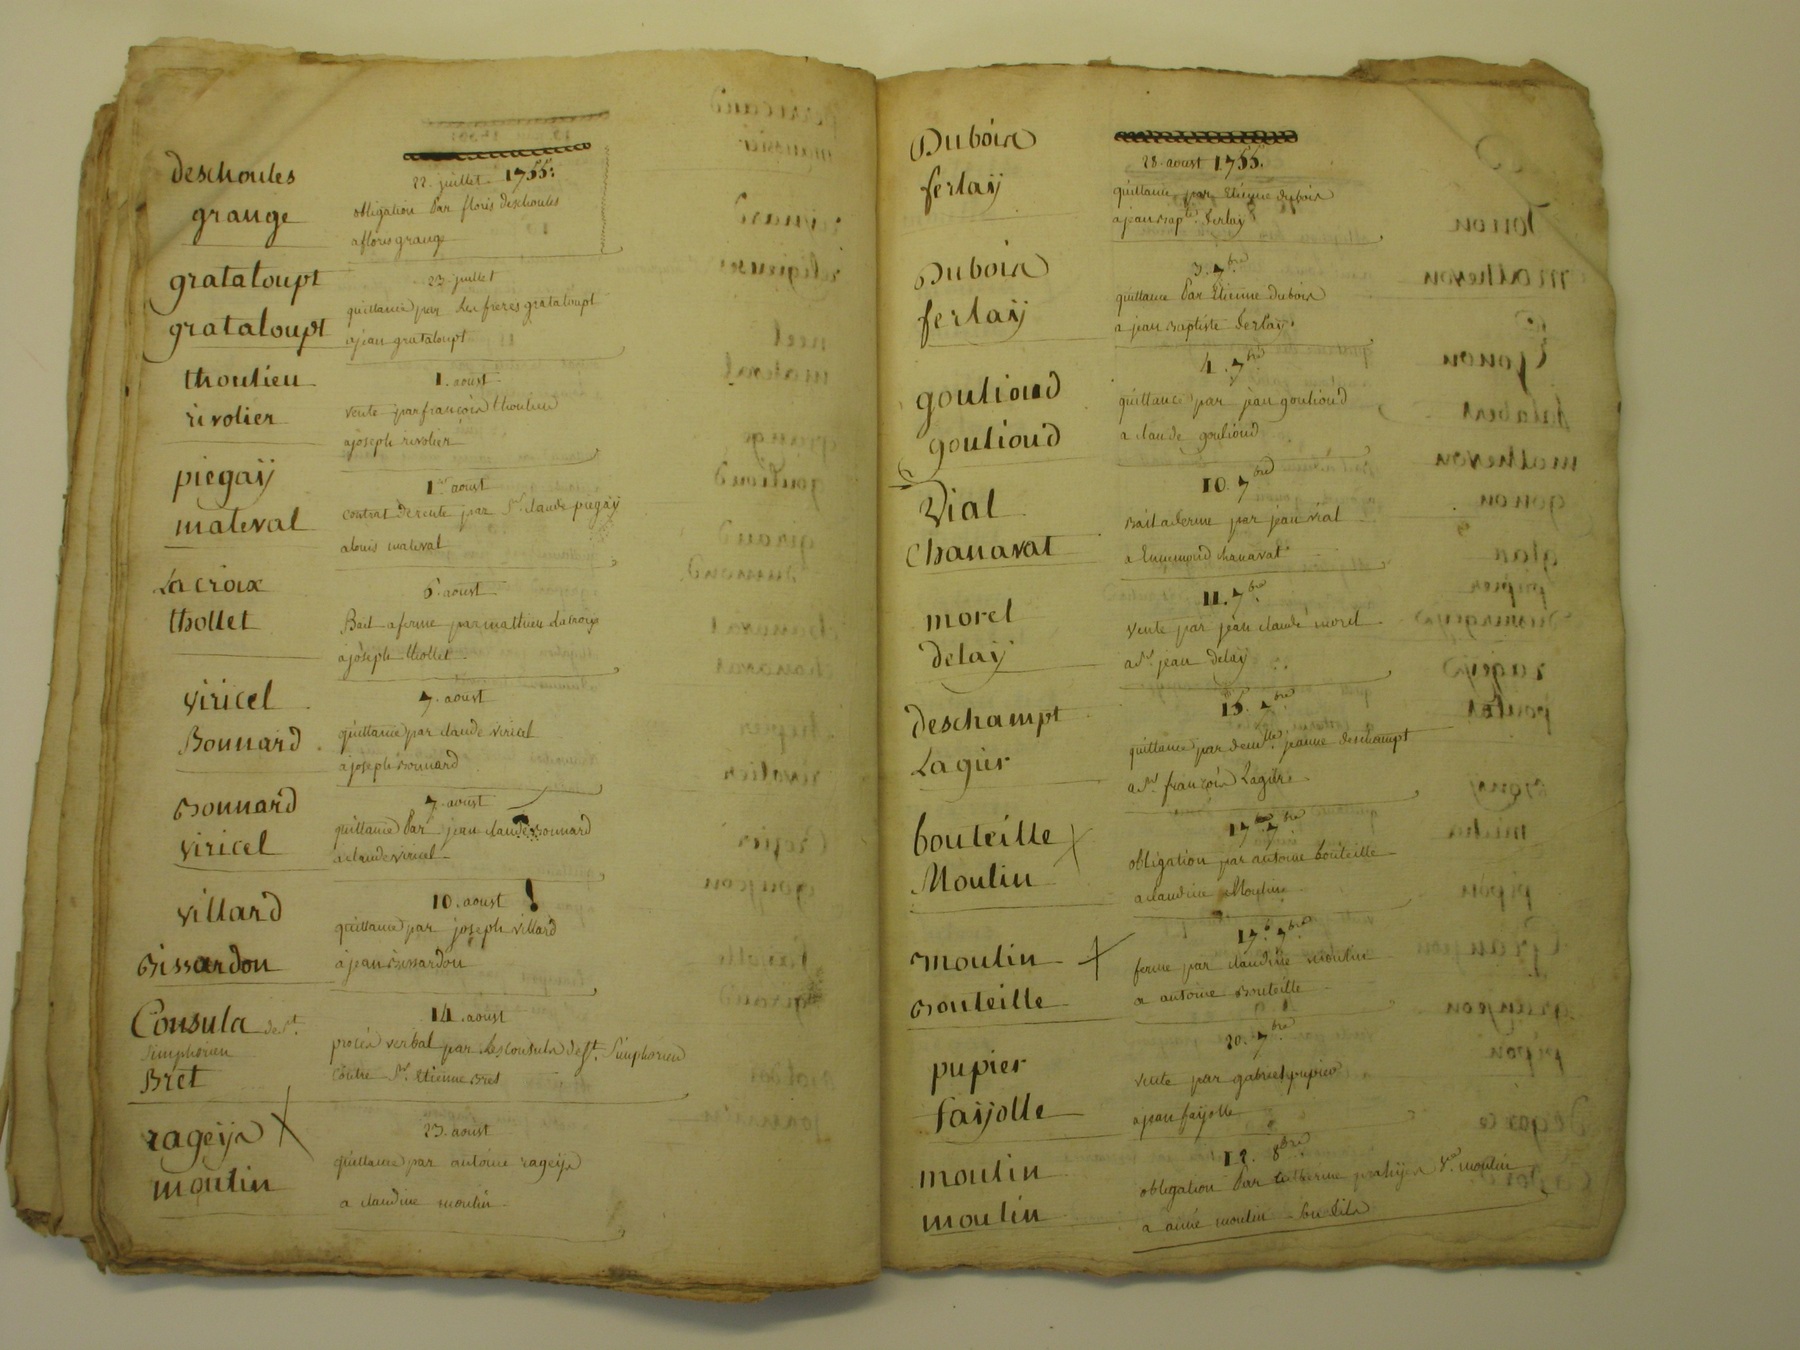 deschoules
grange
22. juillet 1755.
obligation Par floris deschoules
a floris grange
grataloupt
grataloupt
23. juillet
quittance par les freres grataloupt
a jean grataloupt
thoulieu
rivolier
1. aoust
vente par françois thoulieu
a joseph rivolier
piegaÿ
mateval
1er aoust
contrat de rente par Sr. claude piegaÿ
a louis mateval
Lacroix
thollet
6. aoust
Bail a ferme par mathieu Lacroix
a joseph thollet
viricel
Bonnard
7. aoust
quittance par claude viricel
a joseph Bonnard
Bonnard
viricel
7. aoust
quittance Par jean claude Bonnard
a claude viricel
villard
Bissardon
10. aoust
quittance par joseph villard
a jean Bissardon
Consuls de St.
Simphorien
Bret
14. aoust
procès verbal par Les consuls de St. Simphorien
contre Sr. Etienne Bret
rageijs
moulin
23. aoust
quittance par antoine rageijs
a claudine moulin
Dubois
ferlaÿ
28. aoust 1755.
quittance par Etienne dubois
a jean Bapte. ferlaÿ
Dubois
ferlaÿ
3. 7bre
quittance Par Etienne dubois
a jean Baptiste ferlaÿ
goulioud
goulioud
4. 7bre
quittance par jean goulioud
a claude goulioud
Vial
Chanavat
10. 7bre
Bail a ferme par jean vial
a Ennemond chanavat
morel
Delaÿ
11. 7bre
vente par jean claude morel
a Sr. jean Delaÿ
deschampt
Lagier
15. 7bre
quittance par demlle. jeanne deschampt
a Sr. françois Lagier
bouteille
Moulin
17. 7bre
obligation par antoine bouteille
a claudine Moulin
moulin
Bouteille
17. 7bre
ferme par claudine moulin
a antoine Bouteille
pupier
faÿolle
20. 7bre
vente par gabriel pupier
a jean faÿolle
moulin
moulin
12. 8bre
obligation Par Catherine ve. moulin
a aimé moulin son fils